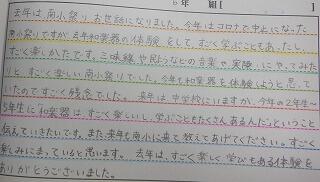 6年 組[ ]
去年は、南小祭りお世話になりました。今年はコロナで中止になった
南小祭りですが、去年和楽器の体験をして、すごく学ぶこともあったし、
すごく楽しかたです。三味線や尺八などの音楽を、実際にやってみた
りと、すごく楽しい南小祭りでした。今年も和楽器を体験しようと思って
いたのですごく残念でした。来年は、中学校にいますが、今年の2年生~
5年生に「和楽器は、すごく楽しいし、学ぶこともたくさんあるんだ。」ということ
伝えていきたいです。また来年も南小に来て教えてあげてください。すごく
楽しみにまっていると思います。去年は、すごく楽しく学びもある体験を
ありがとうございました。